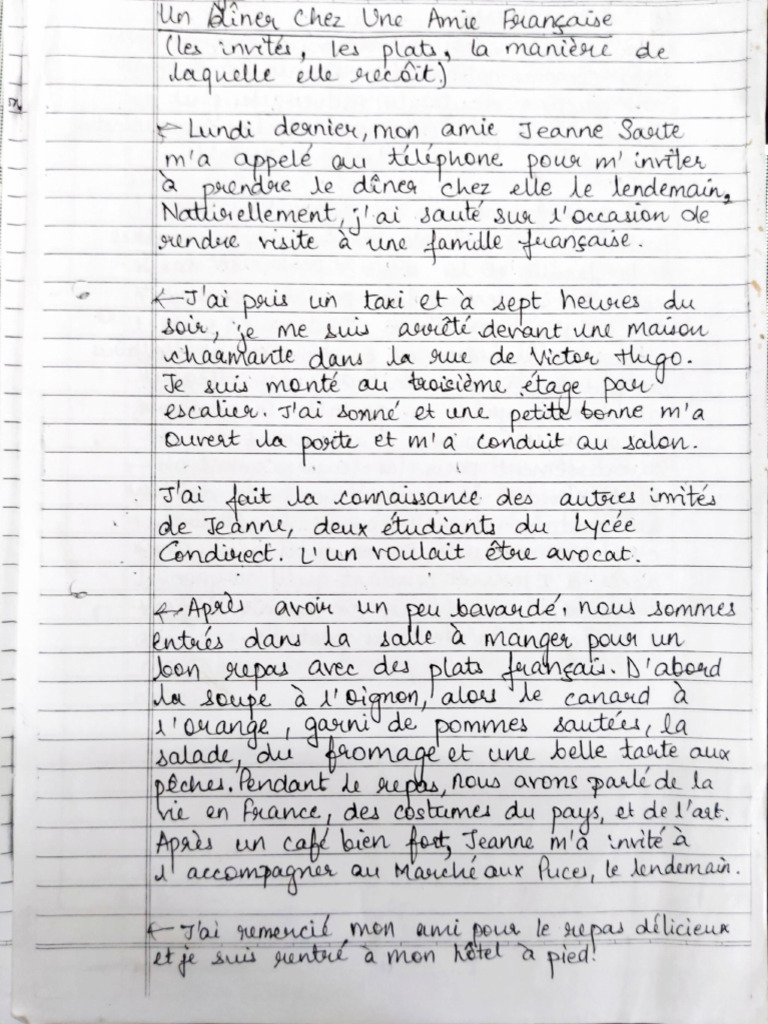 Un Dîner Chez Une Amie Française
(les invités, les plats, la manière de
laquelle elle recôit)
← Lundi dernier, mon amie Jeanne Sarte
m'a appelé au téléphone pour m'inviter
à prendre le dîner chez elle le lendemain,
Naturellement, j'ai sauté sur l'occasion de
rendre visite à une famille française.
← J'ai pris un taxi et à sept heures du
soir, je me suis arrêté devant une maison
charmante dans la rue de Victor Hugo.
Je suis monté au troisième étage par
escalier. J'ai sonné et une petite bonne m'a
ouvert la porte et m'a conduit au salon.
J'ai fait la connaissance des autres invités
de Jeanne, deux étudiants du Lycée
Condirect. L'un voulait être avocat.
← Après avoir un peu bavardé, nous sommes
entrés dans la salle à manger pour un
bon repas avec des plats français. D'abord
la soupe à l'oignon, alors le canard à
l'orange, garni de pommes sautées, la
salade, du fromage et une belle tarte aux
pêches. Pendant le repas, nous avons parlé de la
vie en France, des costumes du pays, et de l'art.
Après un café bien fort, Jeanne m'a invité à
l'accompagner au Marché aux Puces, le lendemain.
← J'ai remercié mon ami pour le repas délicieux
et je suis rentré à mon hôtel à pied!